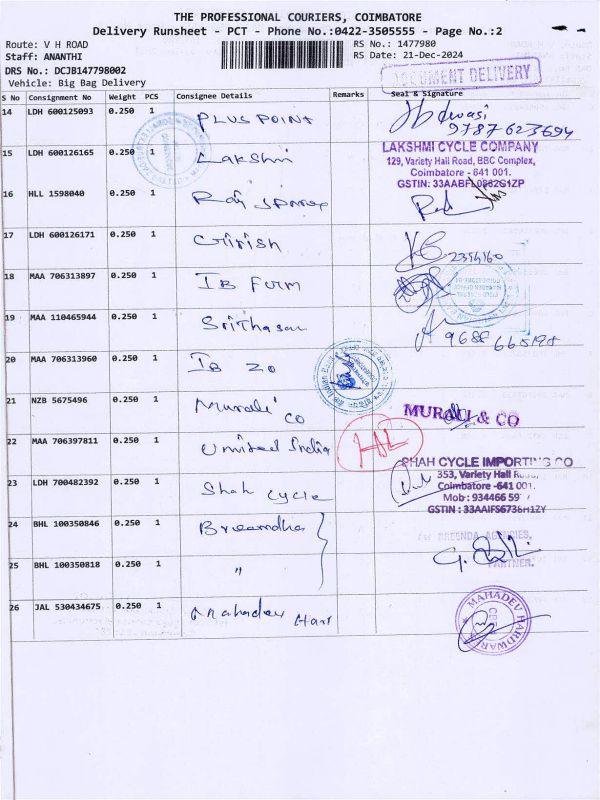 THE PROFESSIONAL COURIERS, COIMBATORE
Delivery Runsheet - PCT - Phone No.:0422-3505555 - Page No.:2
Route: V H ROAD RS No.: 1477980
Staff: ANANTHI RS Date: 21-Dec-2024
DRS No.: DCJB147798002 DOCUMENT DELIVERY
Vehicle: Big Bag Delivery
S No Consignment No Weight PCS Consignee Details Remarks Seal & Signature
14 LDH 600125093 0.250 1 PLUS POINT
9787623694
15 LDH 600126165 0.250 1 Lakshmi LAKSHMI CYCLE COMPANY
129, Variety Hall Road, BBC Complex,
Coimbatore - 641 001.
GSTIN: 33AABFL0862G1ZP
16 HLL 1598040 0.250 1
17 LDH 600126171 0.250 1 Girish
18 MAA 706313897 0.250 1 IB Furm
19 MAA 110465944 0.250 1 Srithasan
20 MAA 706313960 0.250 1 IB zo
21 NZB 5675496 0.250 1 Murali co MURALI & CO
22 MAA 706397811 0.250 1 United India
23 LDH 700482392 0.250 1 Shah cycle SHAH CYCLE IMPORTING CO
353, Variety Hall
Coimbatore -641 001.
Mob : 934466
GSTIN : 33AAIFS6736H1ZY
24 BHL 100350846 0.250 1 AGENCIES,
25 BHL 100350818 0.250 1 " PARTNER.
26 JAL 530434675 0.250 1 Mahadev Hard MAHADEV HARDWAR